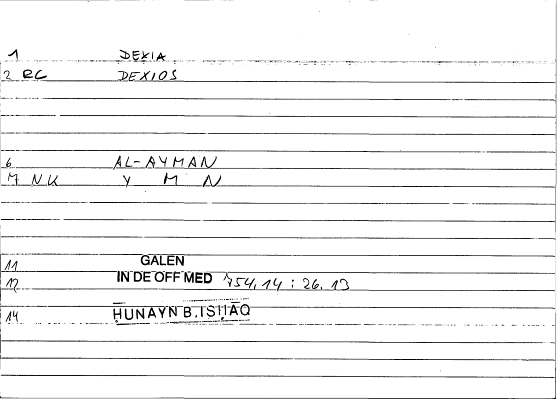 1 DEXIA
2 RC DEXIOS
6 AL-AYMAN
7 NK Y M N
11 GALEN
12 IN DE OFF MED 754,14 : 26.13
14 ḤUNAYN B. ISḤĀQ